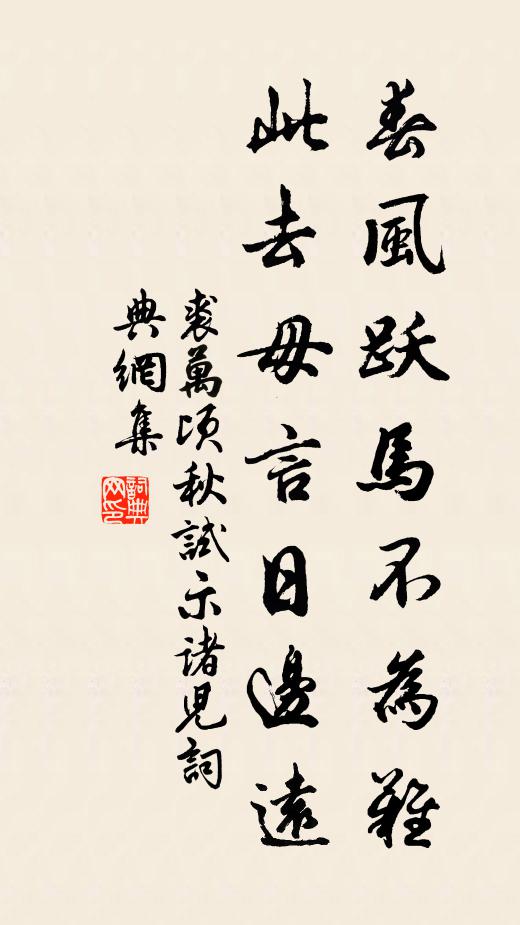 春風跃馬不為難
此去毋言日邊遠
裘萬頃秋試示諸兒詞
典網集
詞典
网印